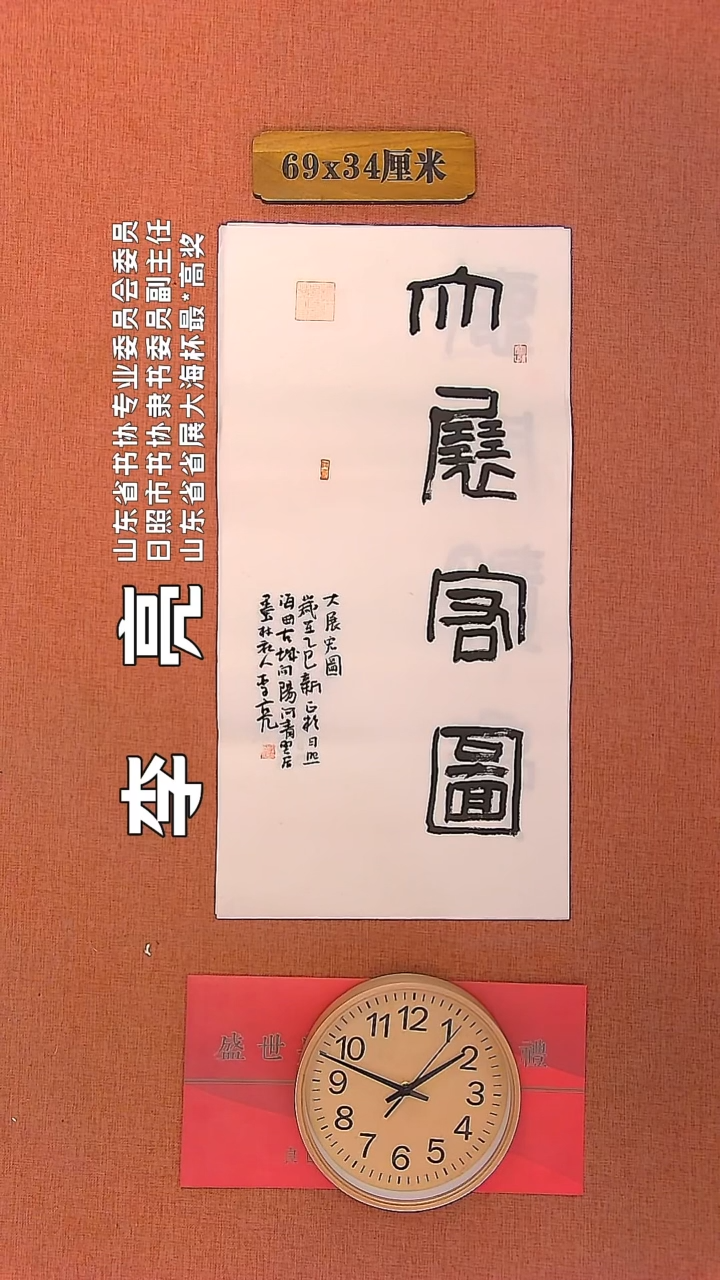 69x34厘米
山东省书协专业委员会委员
日照市书协隶书委员副主任
山东省省展大海杯最*高奖
李 亮
大展宏圖
大展宏圖
歲在乙巳新正於日照
海曲古城向陽河青
李亮
盛世 禮
12 1 2 3 4 5 6 7 8 9 10 11